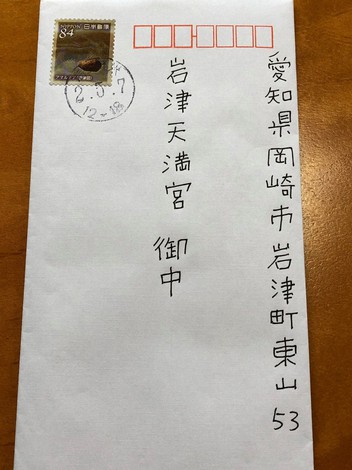 84
NIPPON 日本郵便
2.5.7
12-18
愛知県岡崎市岩津町東山53
岩津天満宮 御中